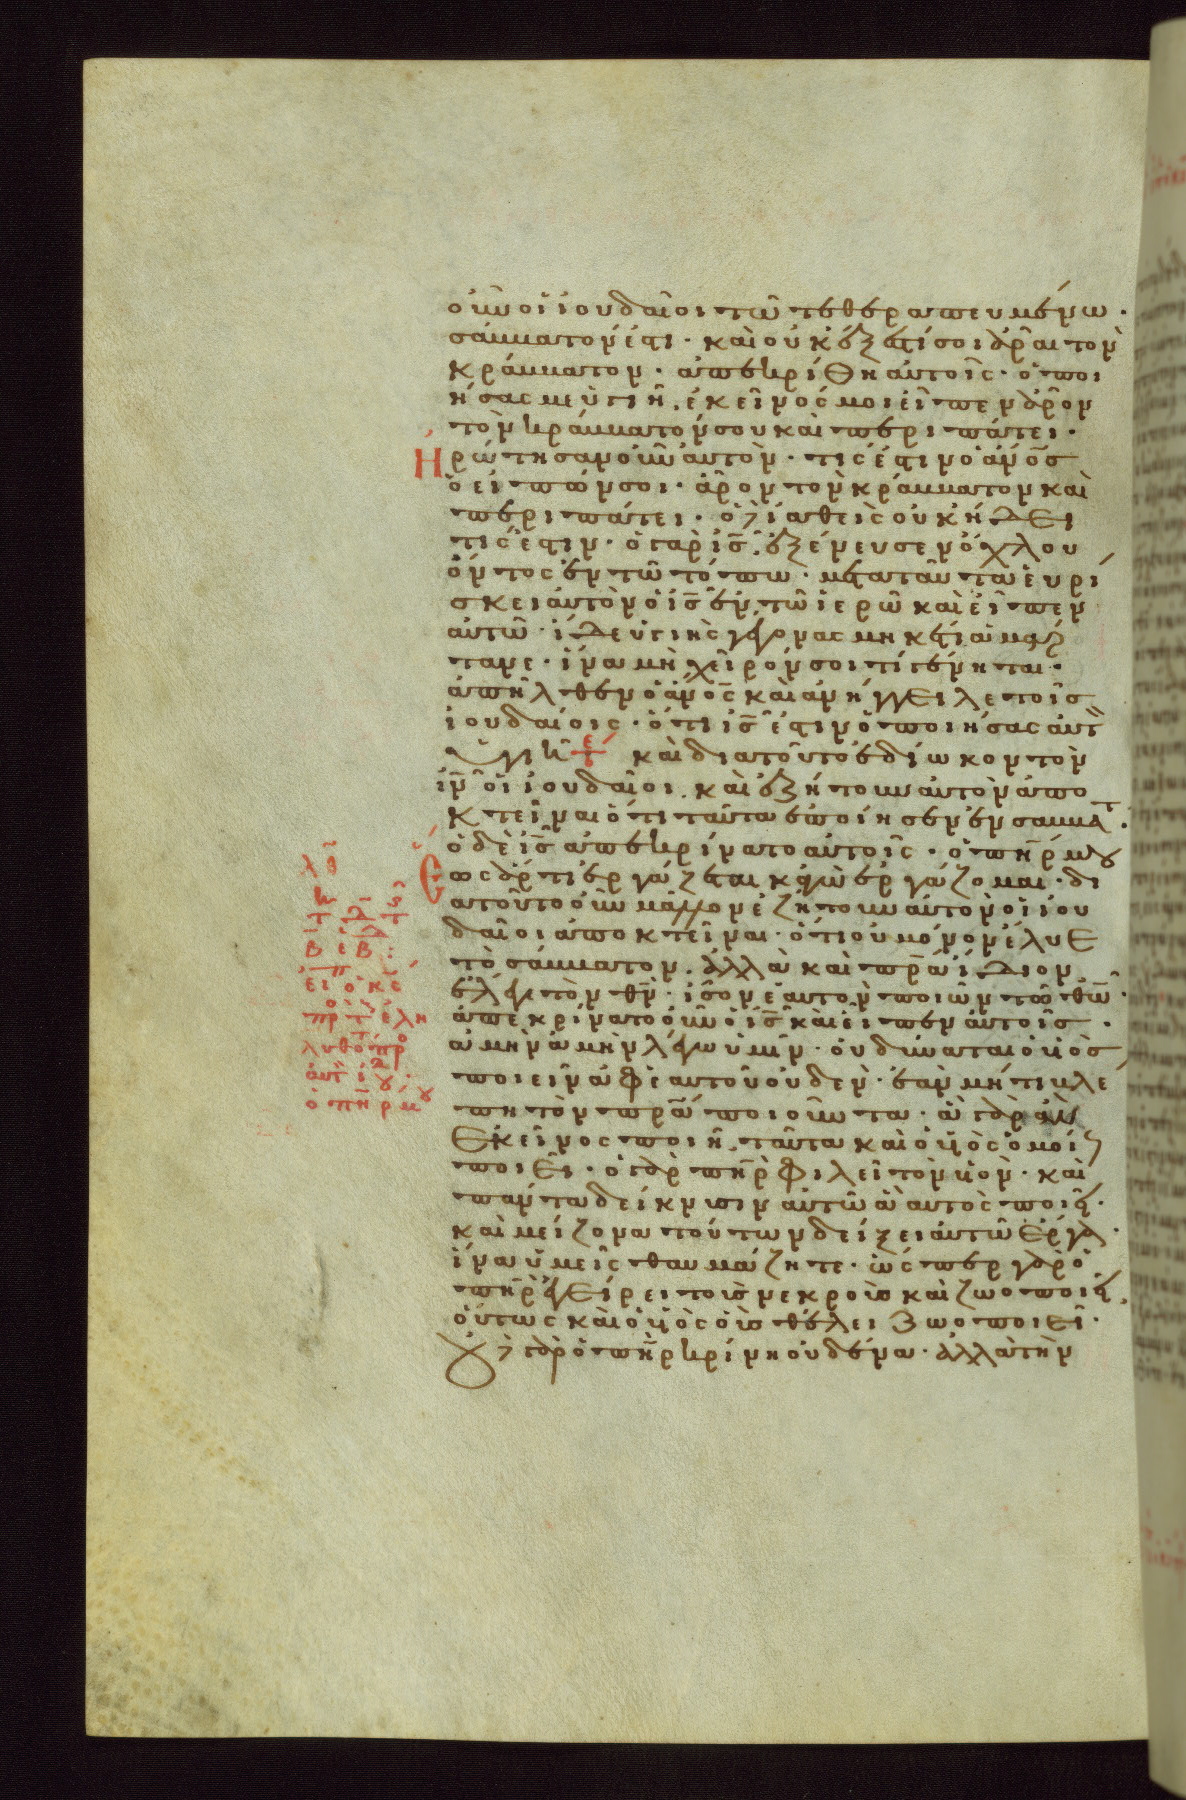 οὖν οἱ ἰουδαῖοι τῶ τεθεραπευμένω·
σάμματον ἐστι· καὶ οὐκ ἔξεστί σοι ἆραι τὸν
κράμματον· ἀπεκρίθη αὐτοῖς· ὁ ποι
ήσας με ὑγιῆ, ἐκεῖνός μοι εἶπεν ἆρον
τὸν κράμματόν σου καὶ περιπάτει·
Ηρώτησαν οὖν αὐτὸν· τίς ἐστιν ὁ ἄνος
ὁ εἰπών σοι· ἆρον τὸν κράμματον καὶ
περιπάτει· ὁ δὲ ἰαθεὶς οὐκ ἤδει
τίς ἐστιν· ὁ γὰρ ις ἐξένευσεν ὄχλου
ὄντος ἐν τῶ τόπω· μετὰ ταῦτα εὑρί
σκει αὐτὸν ὁ ις ἐν τῶ ἱερῶ καὶ εἶπεν
αὐτῶ· ἴδε ὑγιὴς γέγονας μηκέτι ἁμάρ
τανε· ἵνα μὴ χεῖρόν σοι τί γένηται·
ἀπῆλθεν ὁ ἄνος καὶ ἀνήγγειλε τοῖς
ἰουδαίοις· ὅτι ις ἐστιν ὁ ποιήσας αὐτ
ὑγιῆ τε καὶ διατοῦτο ἐδίωκον τὸν
ιν οἱ ἰουδαῖοι, καὶ ἐζήτουν αὐτὸν ἀπο
κτεῖναι ὅτι ταῦτα ἐποίησεν ἐν σαμματ·
ὁ δὲ ις ἀπεκρίνατο αὐτοῖς· ὁ πηρ μου
Εως ἄρτι ἐργάζεται κἀγὼ ἐργάζομαι· δι
ατοῦτο οὖν μᾶλλον ἐζήτουν αὐτὸν οἱ ἰου
δαῖοι ἀποκτεῖναι· ὅτι οὐ μόνον ἔλυε
τὸ σάμματον, ἀλλὰ καὶ πρα ἴδιον
ἔλεγε τὸν θν· ἴσον ἑαυτὸν ποιῶν τῶ θω·
ἀπεκρίνατο οὖν ὁ ις καὶ εἶπεν αὐτοῖς·
ἀμὴν ἀμὴν λέγω ὑμῖν· οὐ δύναται ὁ υἱὸς
ποιεῖν ἀφ ἑαυτοῦ οὐδὲν· ἐὰν μή τι βλέ
πη τὸν πρα ποιοῦντα· ἃ γὰρ ἂν
Εκεῖνος ποιῆ, ταῦτα καὶ ὁ υἱὸς ὁμοίως
ποιεῖ· ὁ γὰρ πηρ φιλεῖ τὸν υἱὸν· καὶ
πάντα δείκνυσιν αὐτῶ ἃ αὐτὸς ποιεῖ·
καὶ μείζονα τούτων δείξει αὐτῶ ἔργα·
ἵνα ὑμεῖς θαυμάζητε· ὥσπερ γὰρ ὁ
πηρ ἐγείρει τοὺς νεκροὺς καὶ ζωοποιεῖ·
οὕτως καὶ ὁ υἱὸς οὓς θέλει ζωοποιεῖ·
Οὐδὲ γὰρ ὁ πηρ κρίνη οὐδένα· ἀλλὰ τὴν
λθ
τ
β εβ:
εἶπ ὁ κς
πρ τ ἐλη
λυθό πρ
αὐτ ἰου·
ὁ πηρ μου